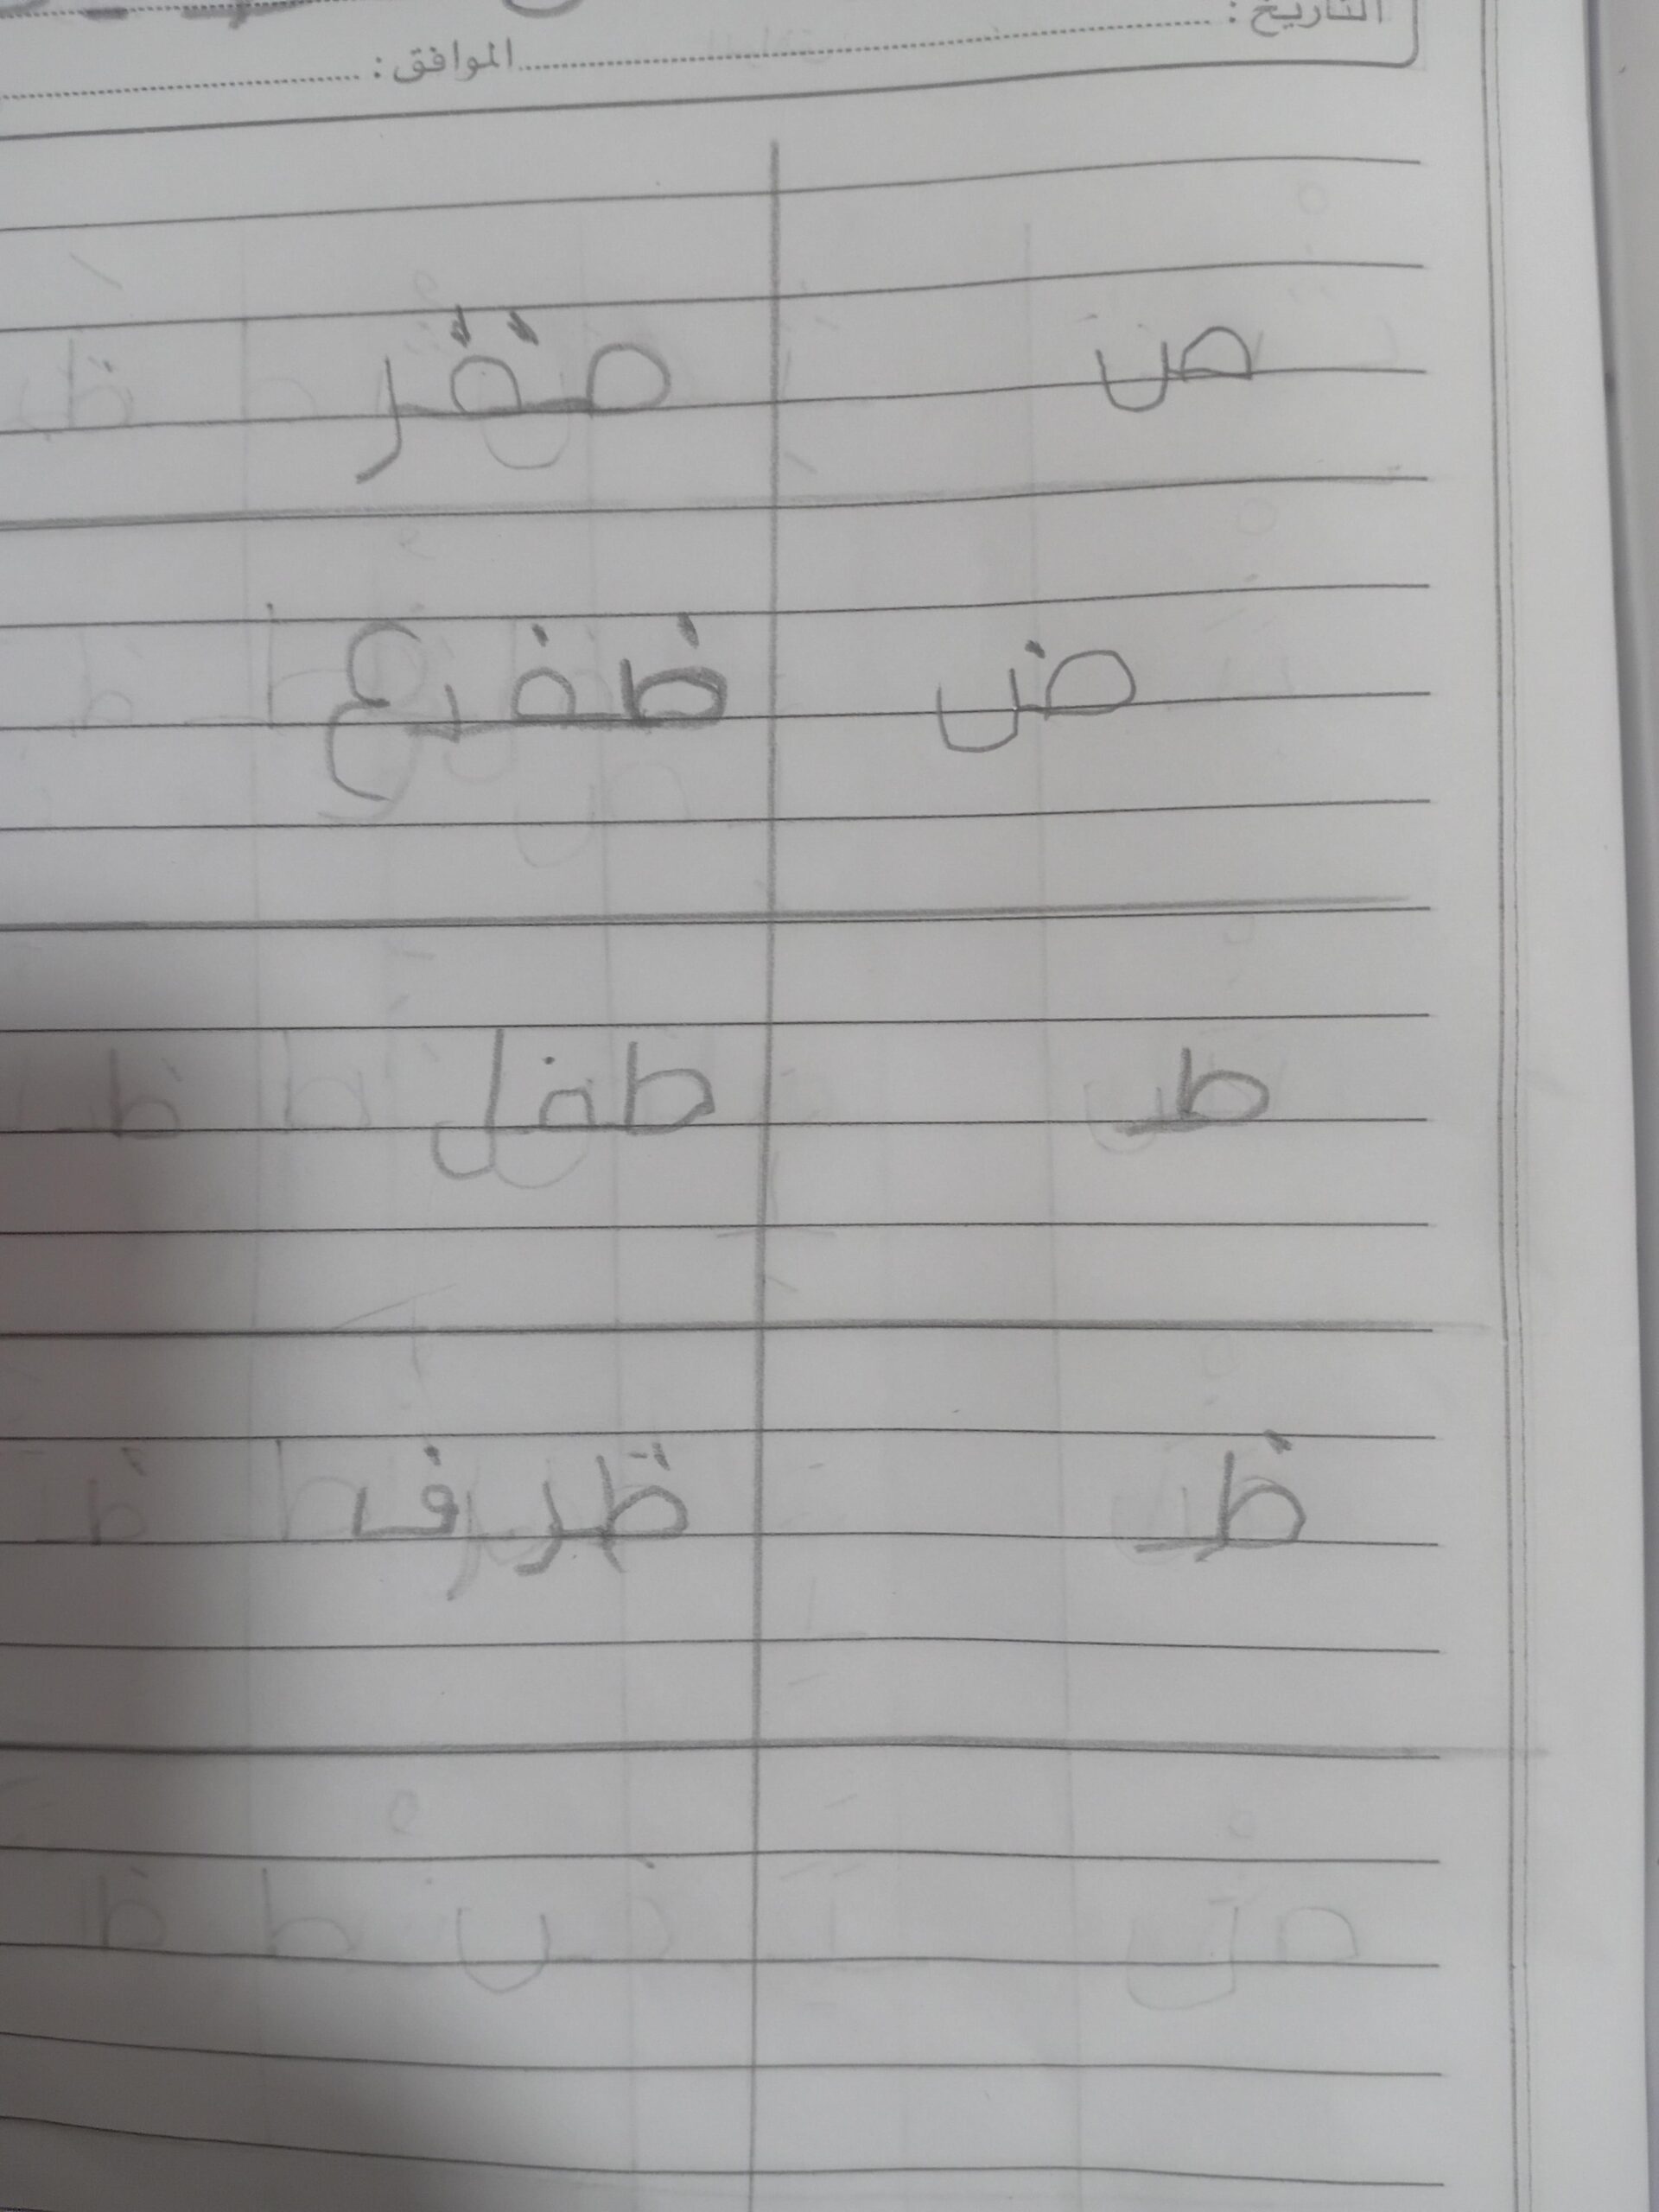 التاريخ : ........................ الموافق : ........................
ص صقر
ض ظفرع
ط طفل
ظ ظرف